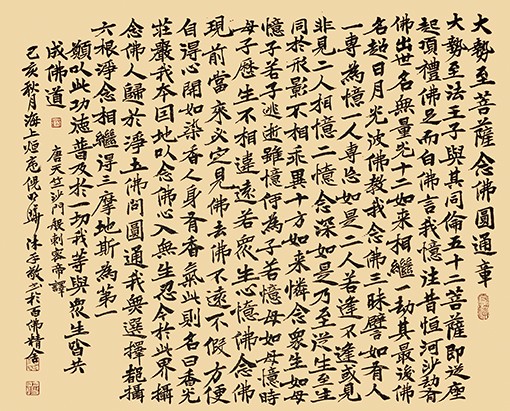 大勢至菩薩念佛圓通章
大勢至法王子與其同倫五十二菩薩即從座
起頂禮佛足而白佛言我憶往昔恒河沙劫有
佛出世名無量光十二如來相繼一劫其最後佛
名超日月光彼佛教我念佛三昧譬如有人
一專為憶一人專忘如是二人若逢不逢或見
非見二人相憶二憶念深如是乃至從生至生
同於形影不相乖異十方如來憐念眾生如母
憶子若子逃逝雖憶何為子若憶母如母憶時
母子歷生不相違遠若眾生心憶佛念佛
現前當來必定見佛去佛不遠不假方便
自得心開如染香人身有香氣此則名曰香光
莊嚴我本因地以念佛心入無生忍今於此界攝
念佛人歸於淨土佛問圓通我無選擇都攝
六根淨念相繼得三摩地斯為第一
願以此功德普及於一切我等與眾生皆共
成佛道 唐天竺沙門般剌密帝譯
己亥秋月海上恒庵倪沐手敬書於百佛精舍